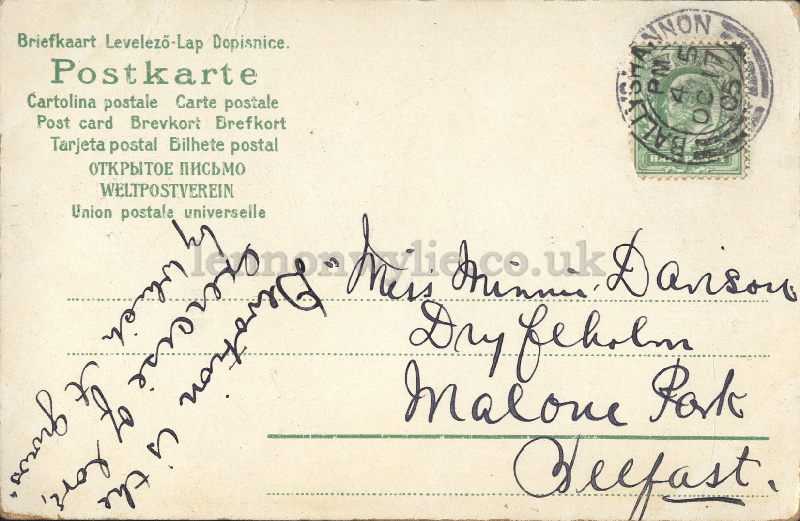 Briefkaart Levelező-Lap Dopisnice.
Postkarte
Cartolina postale Carte postale
Post card Brevkort Brefkort
Tarjeta postal Bilhete postal
ОТКРЫТОЕ ПИСЬМО
WELTPOSTVEREIN
Union postale universelle
BALLYSHANNON
4 5 PM
OC 17
05
HALF PENNY
lennonwylie.co.uk
Miss Minnie Davison
Dryfeholm
Malone Park
Belfast.
"Devotion is the
exercise of Love,
by which it grows"